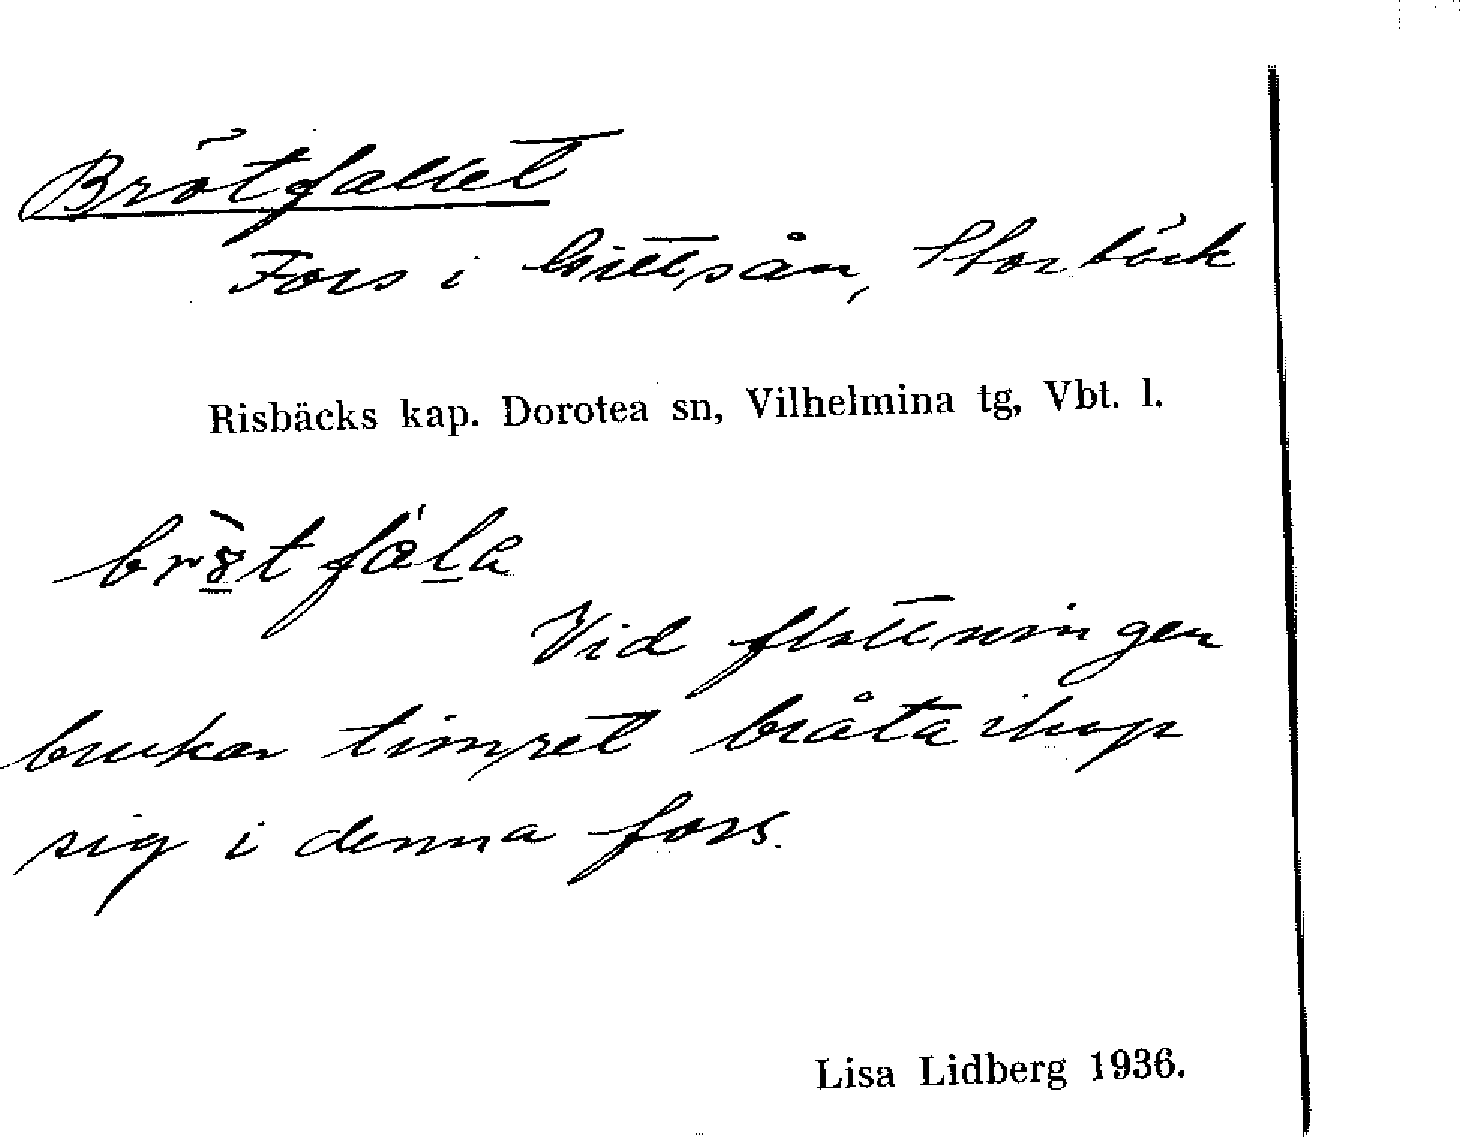 Brötfallet
Fors i Gittsån, Storbäck
Risbäcks kap. Dorotea sn, Vilhelmina tg, Vbt. l.
Vid flottningen
brukar timret bråta ihop
sig i denna fors.
Lisa Lidberg 1936.